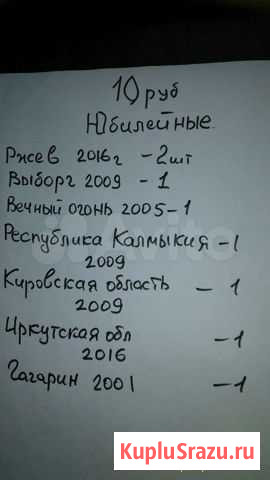 10 руб
Юбилейные.
Ржев 2016г - 2шт
Выборг 2009 - 1
Вечный огонь 2005 - 1
Республика Калмыкия - 1
2009
Кировская область - 1
2009
Иркутская обл - 1
2016
Гагарин 2001 - 1
Avito
KupluSrazu.ru